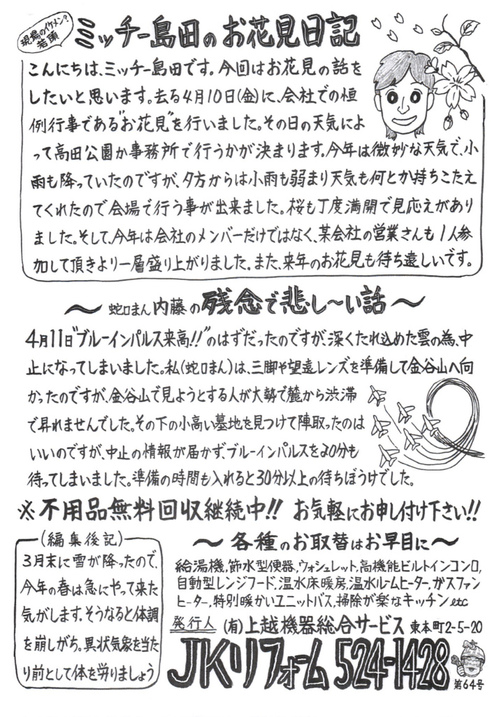 現場のイケメン?
若頭
ミッチー島田のお花見日記
こんにちは、ミッチー島田です。今回はお花見の話を
したいと思います。去る4月10日(金)に、会社での恒
例行事である"お花見"を行いました。その日の天気によ
って高田公園か事務所で行うかが決まります。今年は微妙な天気で、小
雨も降っていたのですが、夕方からは小雨も弱まり天気も何とか持ちこたえ
てくれたので会場で行う事が出来ました。桜も丁度満開で見応えがあり
ました。そして、今年は会社のメンバーだけではなく、某会社の営業さんも1人参
加して頂きより一層盛り上がりました。また、来年のお花見も待ち遠しいです。
〜蛇口まん内藤の残念で悲し〜い話〜
4月11日"ブルーインパルス来高!!"のはずだったのですが、深くたれ込めた雲の為、中
止になってしまいました。私(蛇口まん)は、三脚や望遠レンズを準備して金谷山へ向
かったのですが、金谷山で見ようとする人が大勢で麓から渋滞
で昇れませんでした。その下の小高い墓地を見つけて陣取ったのは
いいのですが、中止の情報が届かずブルーインパルスを20分も
待ってしまいました。準備の時間も入れると30分以上の待ちぼうけでした。
※不用品無料回収継続中!! お気軽にお申し付け下さい!!
(編集後記)
3月末に雪が降ったので、
今年の春は急にやって来た
気がします。そうなると体調
を崩しがち。異状気象を当た
り前として体を労りましょう
〜各種のお取替はお早目に〜
給湯機、節水型便器、ウォシュレット、高機能ビルトインコンロ、
自動型レンジフード、温水床暖房、温水ルームヒーター、ガスファン
ヒーター、特別暖かいユニットバス、掃除が楽なキッチンetc
発行人 (有)上越機器総合サービス 東本町2-5-20
JKリフォーム 524-1428 第64号